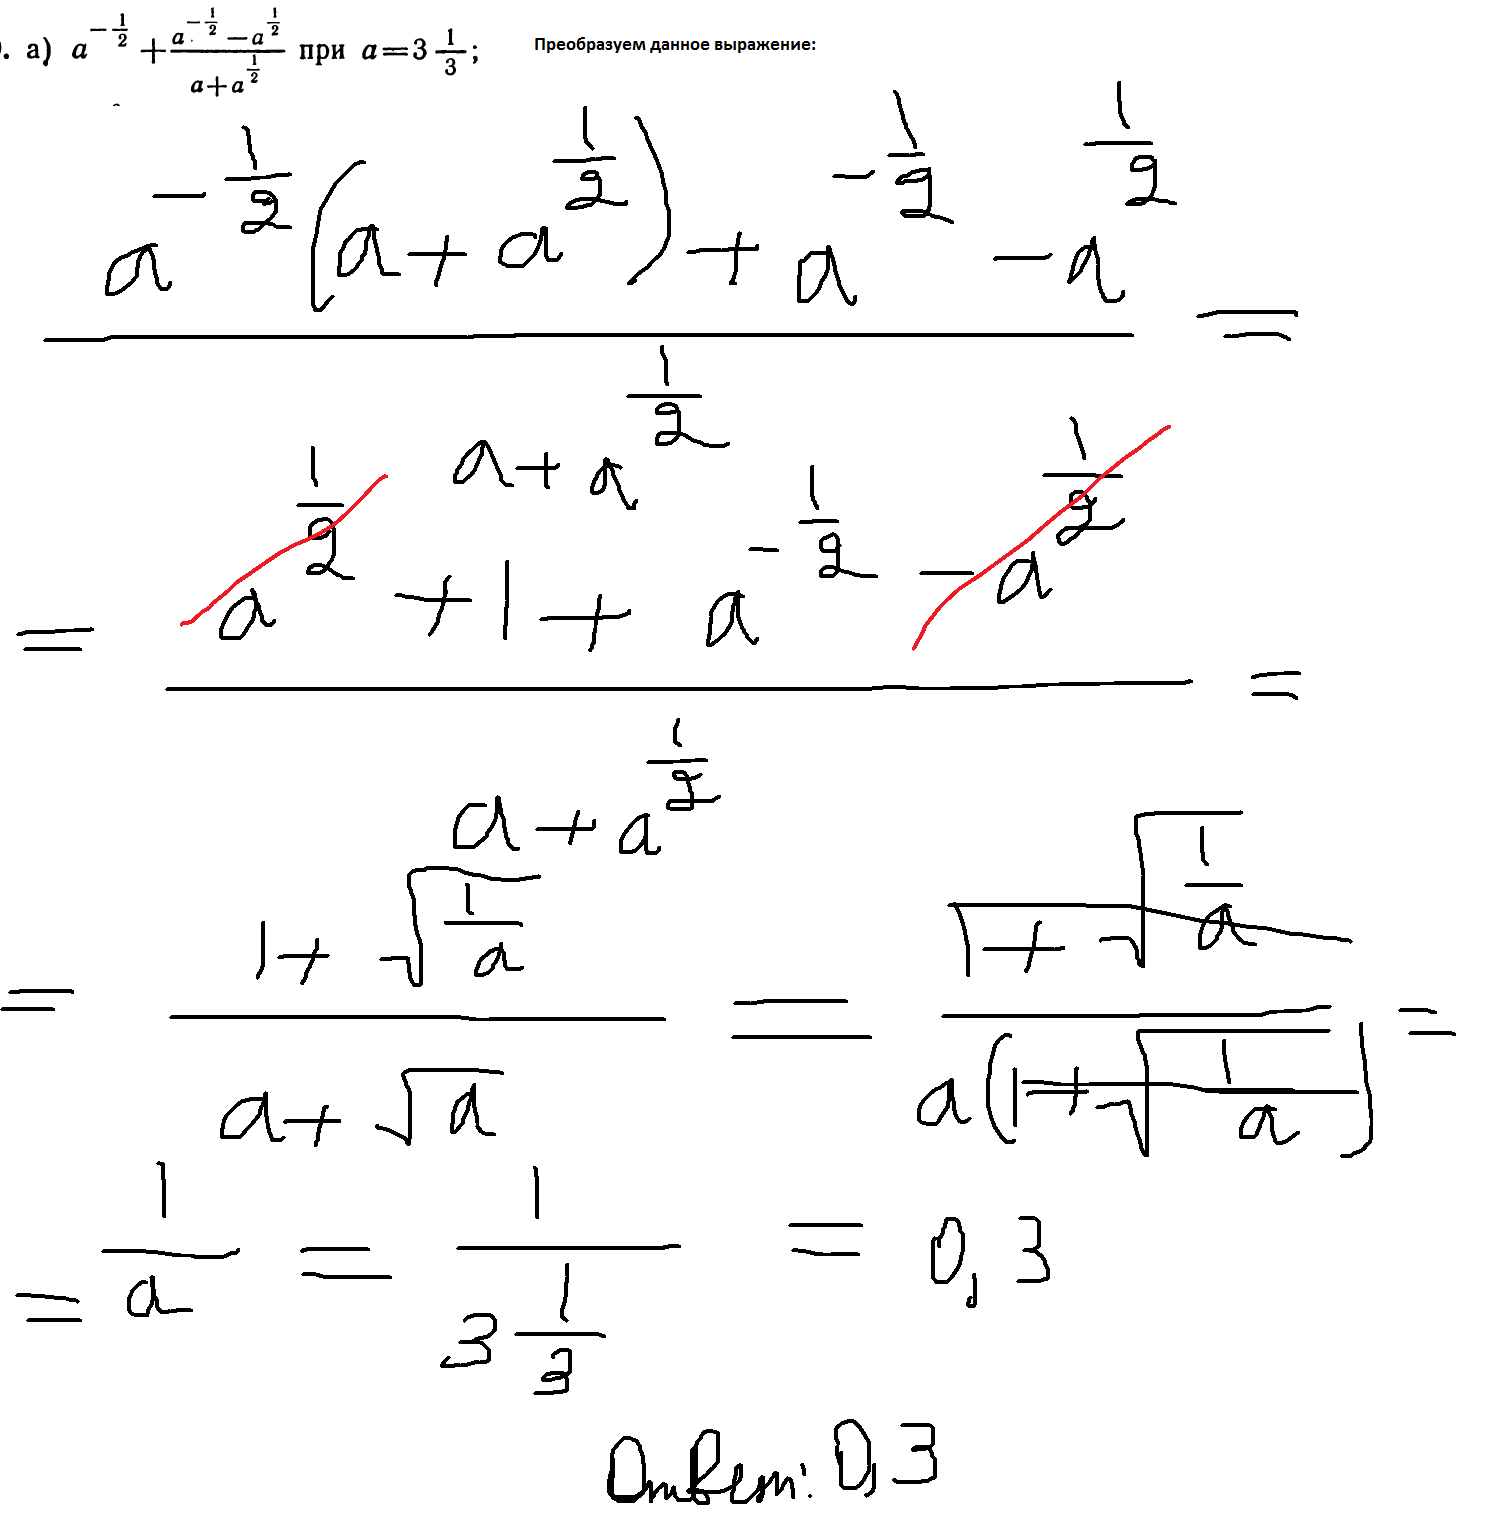 ). а) a^{-\frac{1}{2}} + \frac{a^{-\frac{1}{2}} - a^{\frac{1}{2}}}{a + a^{\frac{1}{2}}} при a = 3\frac{1}{3}; Преобразуем данное выражение:
\frac{a^{-\frac{1}{2}}(a + a^{\frac{1}{2}}) + a^{-\frac{1}{2}} - a^{\frac{1}{2}}}{a + a^{\frac{1}{2}}} =
= \frac{a^{\frac{1}{2}} + 1 + a^{-\frac{1}{2}} - a^{\frac{1}{2}}}{a + a^{\frac{1}{2}}} =
= \frac{1 + \sqrt{\frac{1}{a}}}{a + \sqrt{a}} = \frac{1 + \sqrt{\frac{1}{a}}}{a(1 + \sqrt{\frac{1}{a}})} =
= \frac{1}{a} = \frac{1}{3\frac{1}{3}} = 0,3
Ответ: 0,3